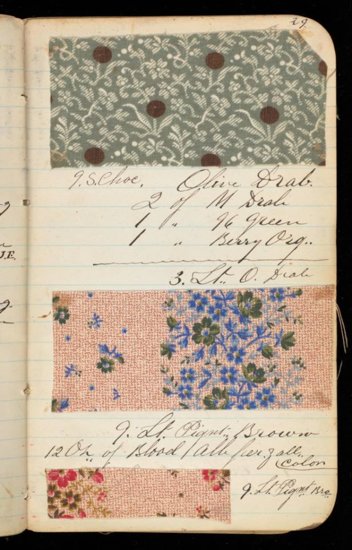 29
9. S. Choc. Olive Drab.
2 of M Drab
1 " 96 Green
1 " Berry Org..
3. Lt. O. Drab
9. Lt. Pignt. Brown
12 Oz. of Blood Alb. per gall.
color
9. Lt. Pignt Bro.
J.E.